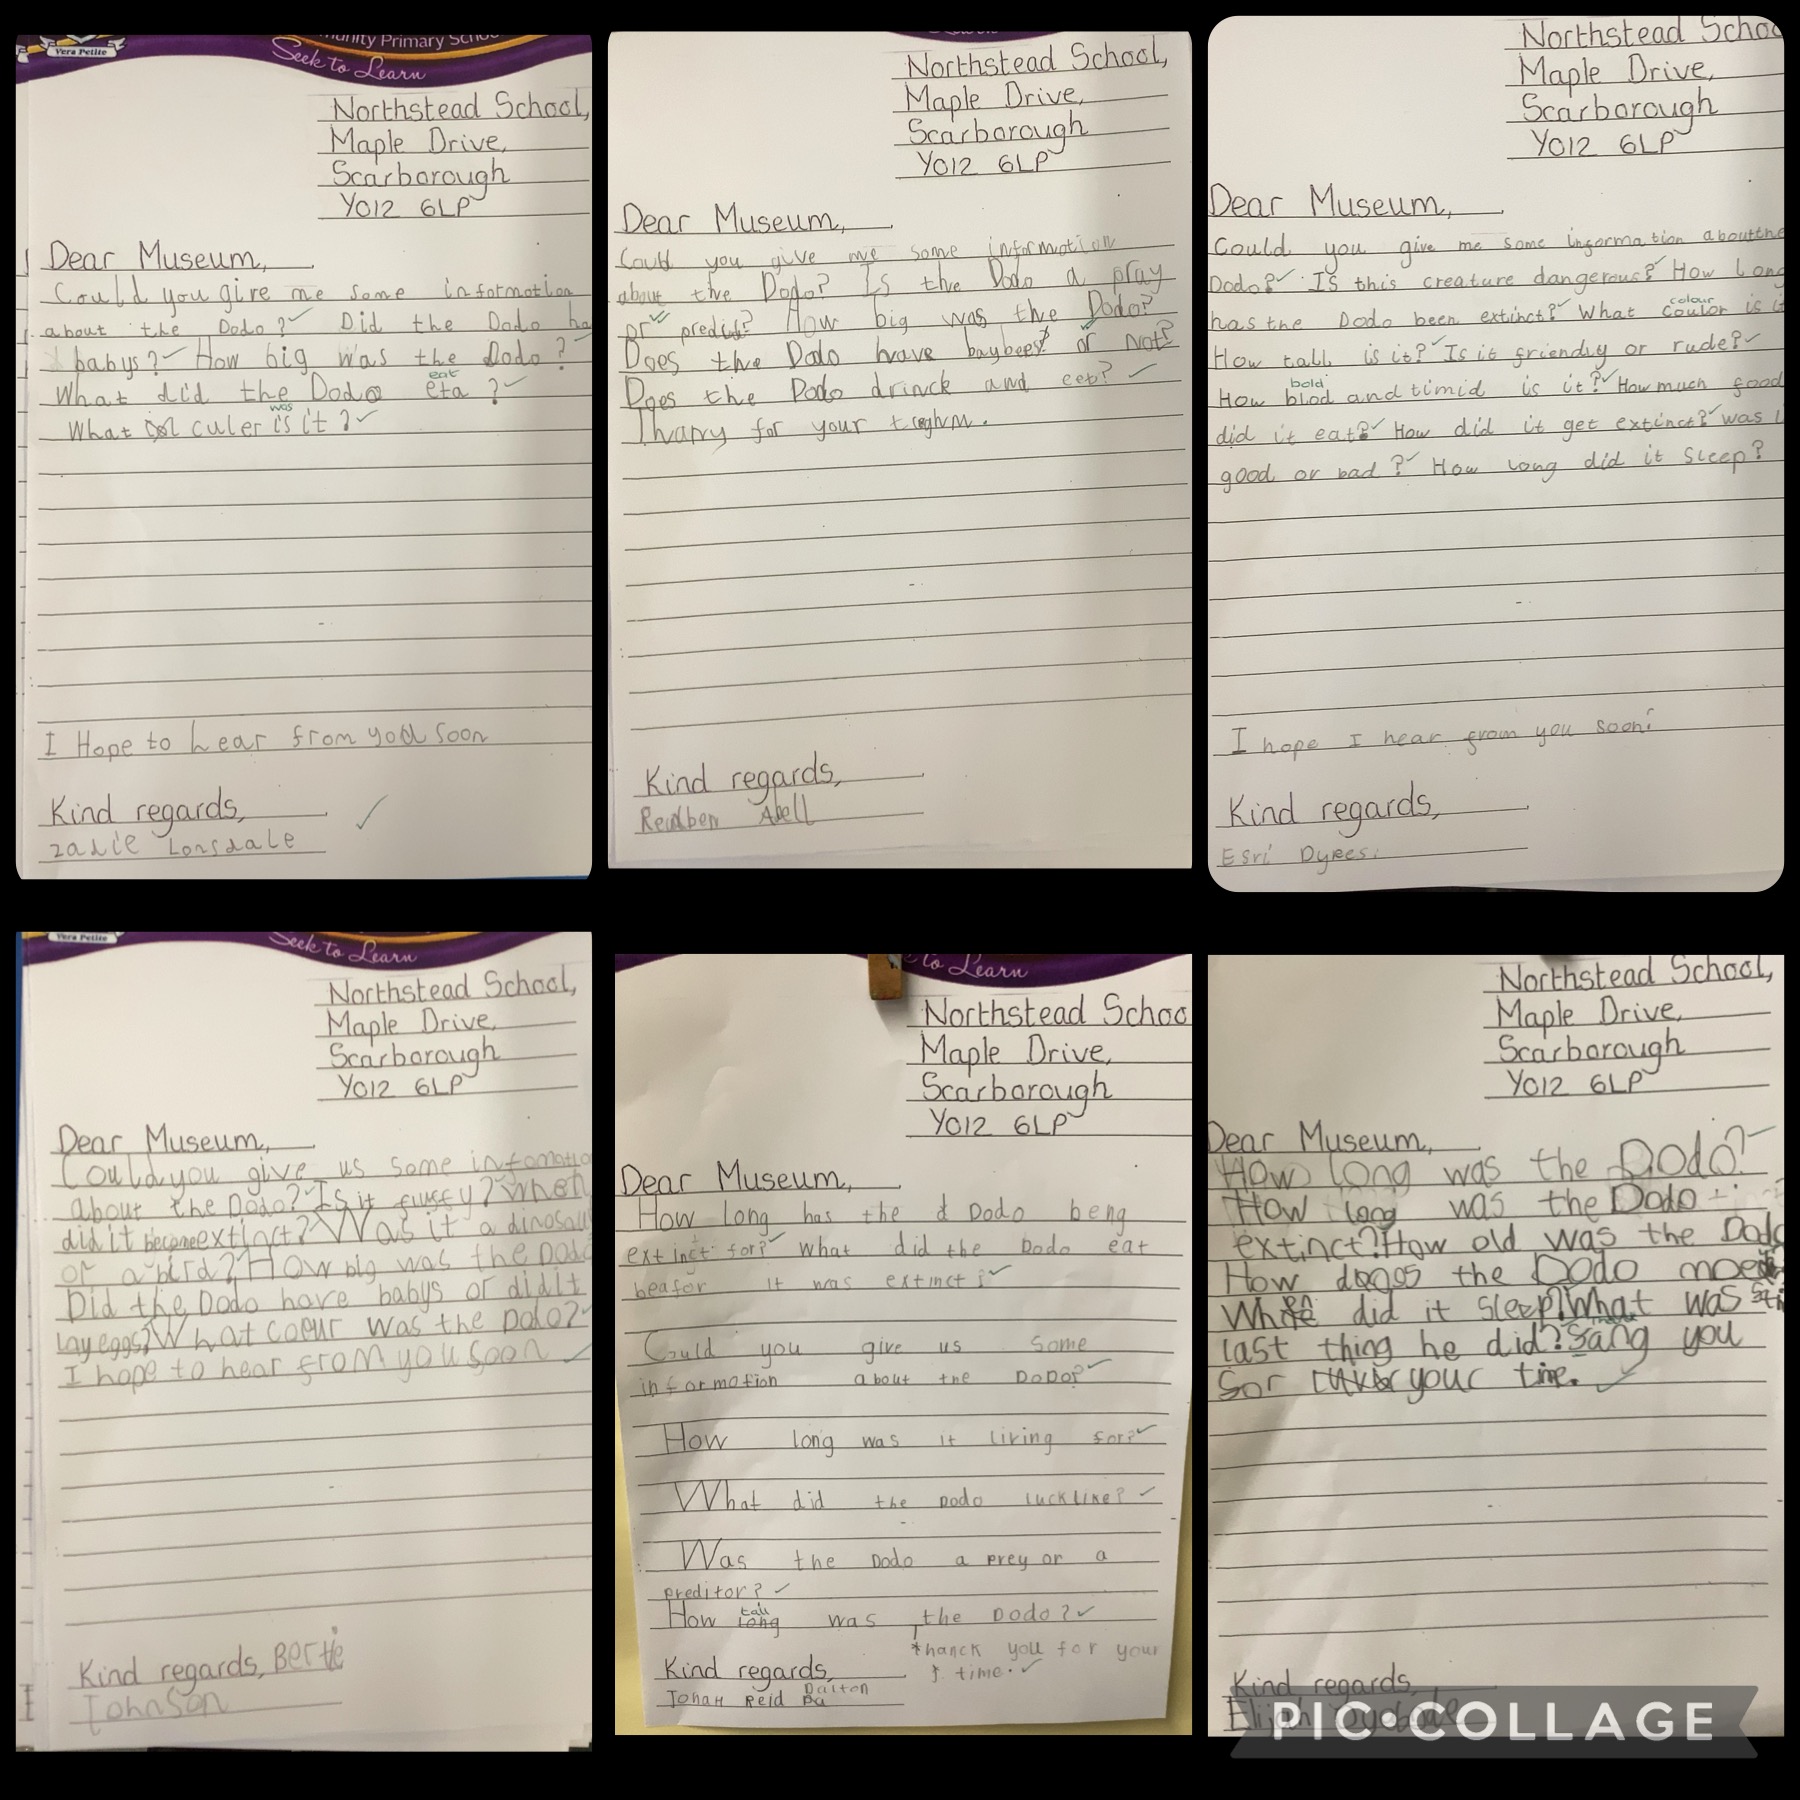 Vera Petite
Primary School
Seek to Learn
Northstead School,
Maple Drive,
Scarborough
YO12 6LP
Dear Museum,
Could you give me some informotion
about the Dodo? Did the Dodo ha
babys? How big was the dodo?
eat
What did the Dodo eta?
was
What culer is it?
I Hope to hear from you soon
Kind regards,
Lonsdale
Northstead School,
Maple Drive,
Scarborough
YO12 6LP
Dear Museum,
Could you give me some information
about the Dodo? Is the Dodo a pray
or How big was the Dodo?
Does the Dodo have baybees or not?
Does the Dodo drinck and eet?
for your
Kind regards,
Reuben Abell
Northstead Schoo
Maple Drive,
Scarborough
YO12 6LP
Dear Museum,
Could you give me some information about the
Dodo? Is this creature dangerous? How long
colour
has the Dodo been extinct? What coulor is it
How tall is it? Is it friendly or rude?
bold
How blod and timid is it? How much food
did it eat? How did it get extinct? was i
good or bad? How long did it sleep?
I hope I hear from you soon!
Kind regards,
Esri
Vera Petite
Seek to Learn
Northstead School,
Maple Drive,
Scarborough
YO12 6LP
Dear Museum,
Could you give us some infomatio
about the Dodo? Is it fluffy? When
did it become extinct? Was it a dinosau
or a bird? How big was the Dodo
Did the Dodo have babys or did it
lay eggs? What was the Dodo?
I hope to hear from you soon
Kind regards, Bertie
Johnson
to Learn
Northstead Schoo
Maple Drive,
Scarborough
YO12 6LP
Dear Museum,
How long has the Dodo beng
extinct for? What did the Dodo eat
beafor it was extinct?
Could you give us some
informotion about the Dodo?
How long was it living for?
What did the Dodo lucklike?
Was the Dodo a prey or a
preditor?
tall
How long was the Dodo?
thanck you for your
time.
Kind regards,
Dalton
Jonah Reid
Northstead School,
Maple Drive,
Scarborough
YO12 6LP
Dear Museum,
How long was the Dodo?
How long was the Dodo
extinct? How old was the Dodo
How the Dodo
When did it sleep? What was
last thing he did? you
for your time.
Kind regards,
Elijah
PIC•COLLAGE